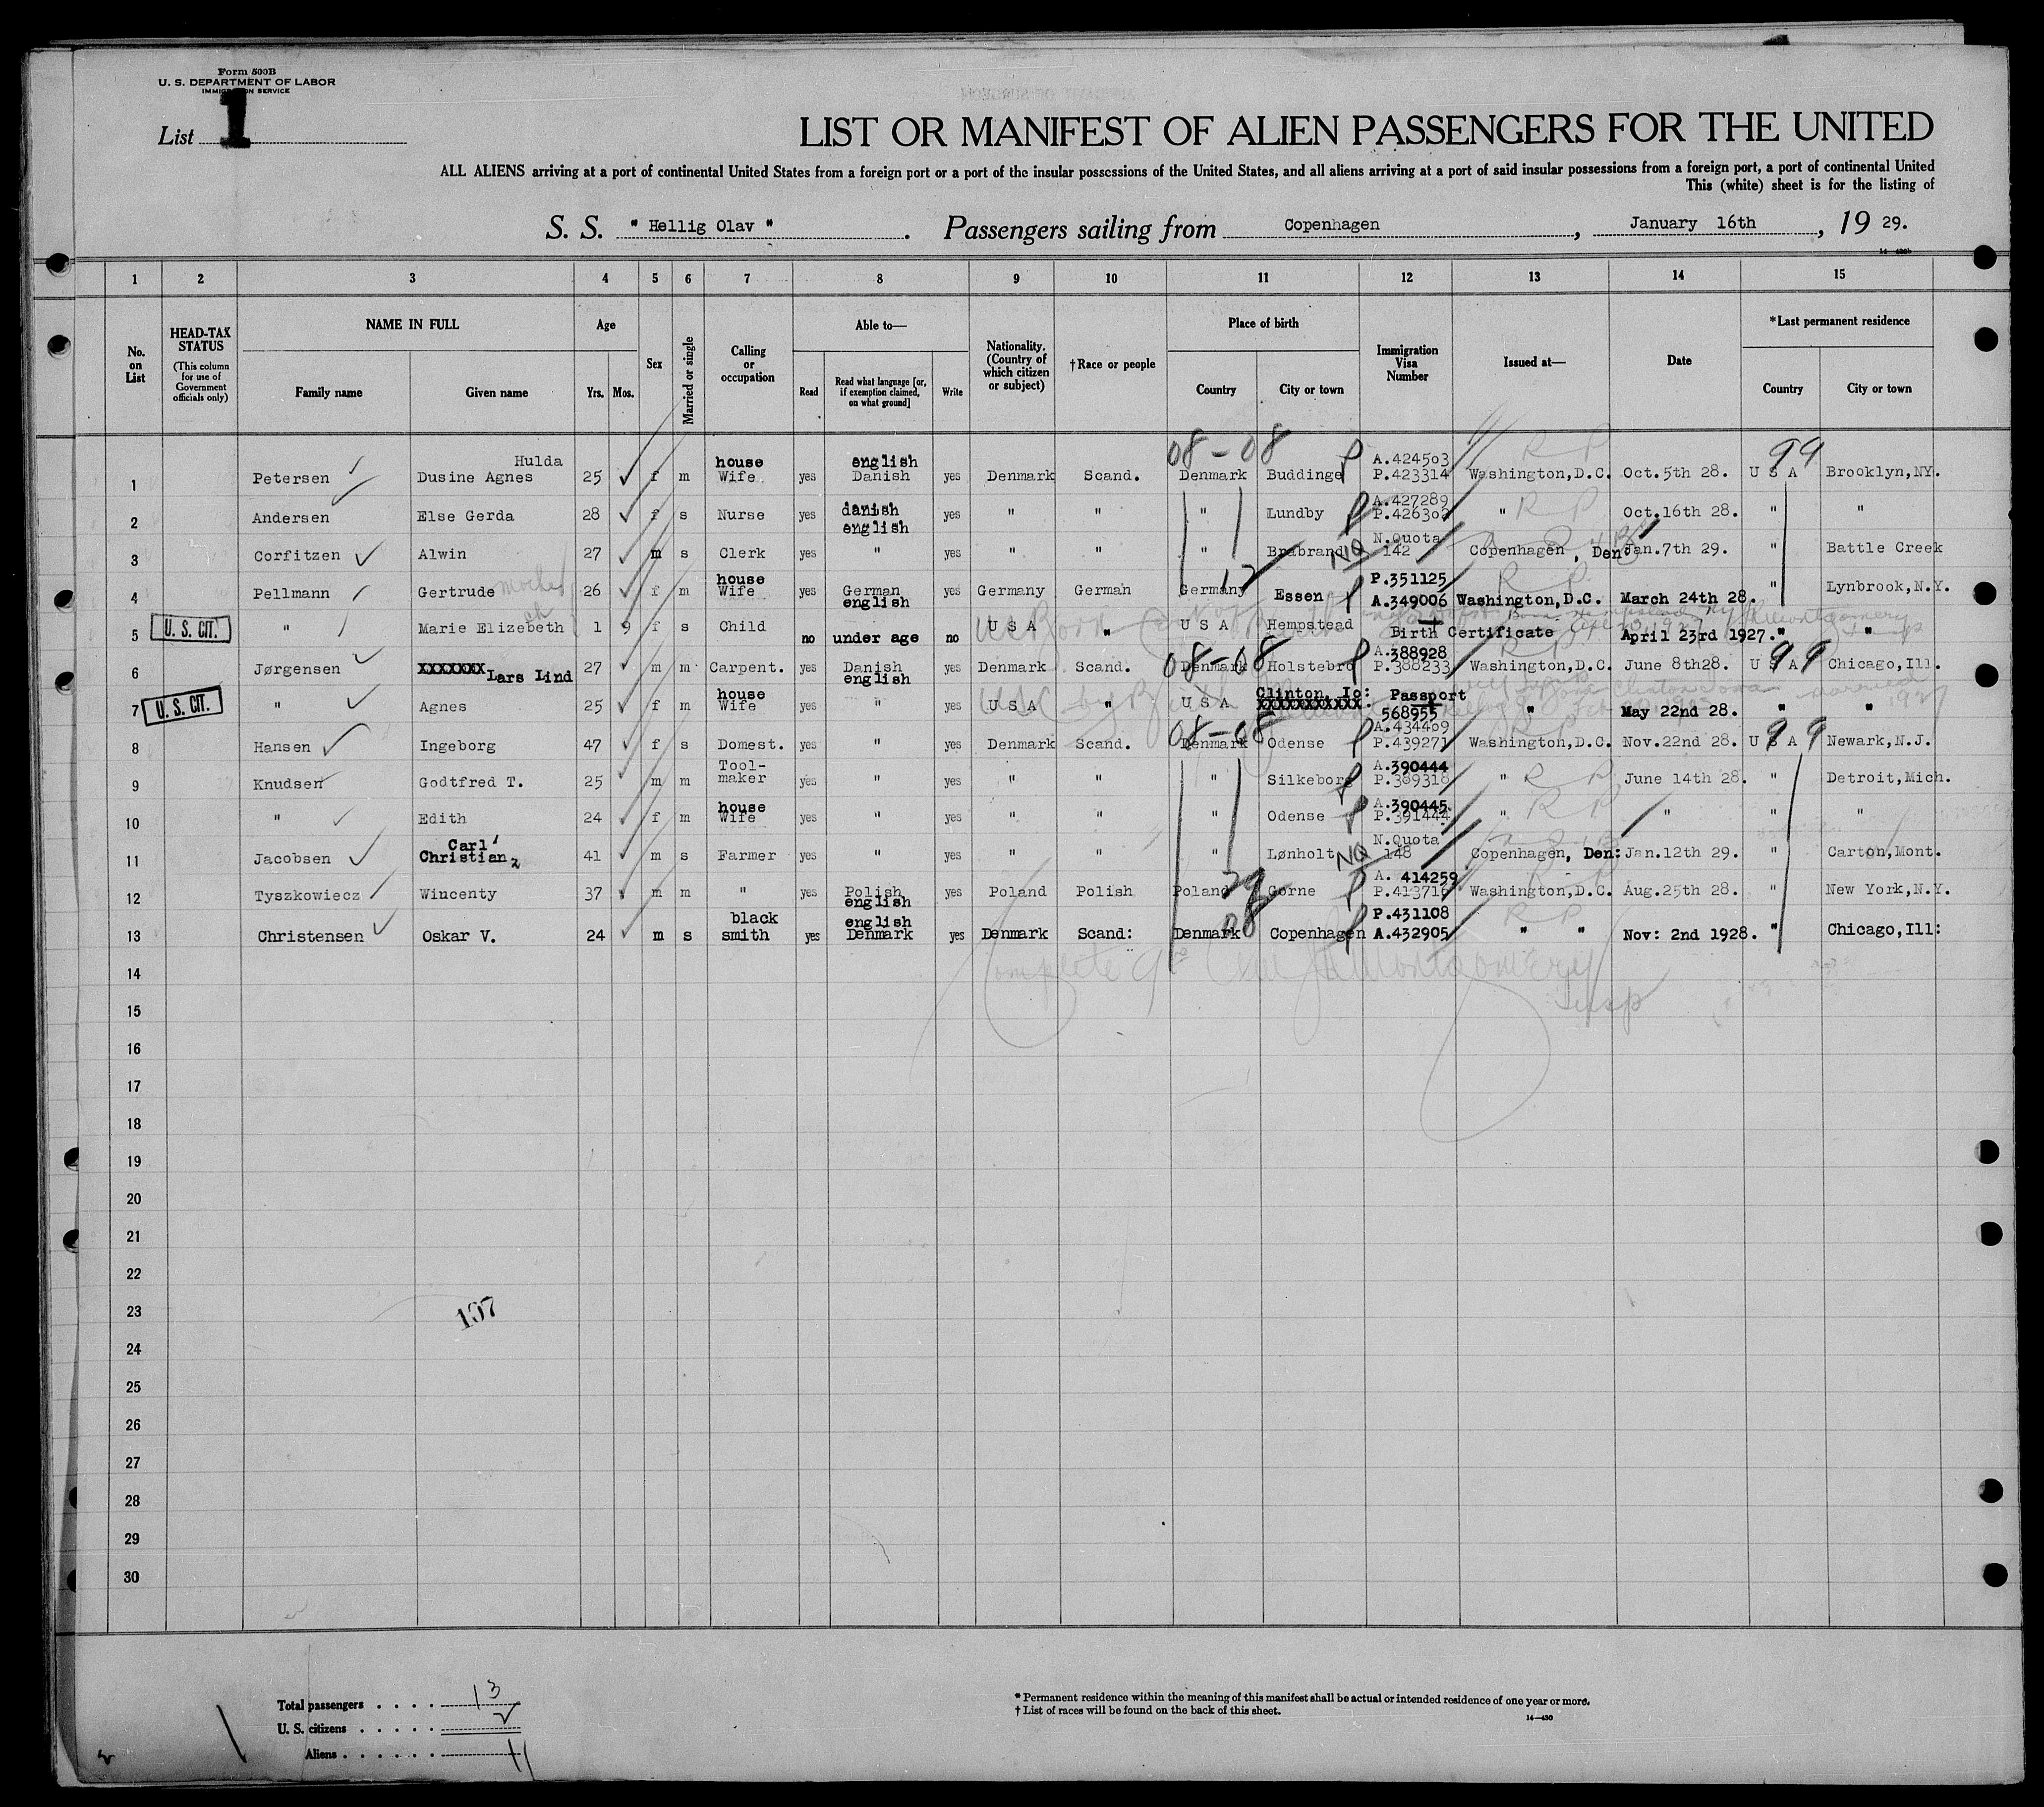 Form 500B
U. S. DEPARTMENT OF LABOR
IMMIGRATION SERVICE
List 1
LIST OR MANIFEST OF ALIEN PASSENGERS FOR THE UNITED
ALL ALIENS arriving at a port of continental United States from a foreign port or a port of the insular possessions of the United States, and all aliens arriving at a port of said insular possessions from a foreign port, a port of continental United
This (white) sheet is for the listing of
S. S. " Hellig Olav ". Passengers sailing from Copenhagen, January 16th, 19 29.
1 2 3 4 5 6 7 8 9 10 11 12 13 14 15
No. on List
HEAD-TAX STATUS
(This column for use of Government officials only)
NAME IN FULL
Family name Given name
Age
Yrs. Mos.
Sex
Married or single
Calling or occupation
Able to—
Read
Read what language [or, if exemption claimed, on what ground]
Write
Nationality. (Country of which citizen or subject)
†Race or people
Place of birth
Country City or town
Immigration Visa Number
Issued at—
Date
*Last permanent residence
Country City or town
08-08 R P 99
Hulda house english A.424503
1 Petersen Dusine Agnes 25 f m Wife yes Danish yes Denmark Scand. Denmark Buddinge P.423314 Washington,D.C. Oct.5th 28. U S A Brooklyn,NY.
danish A.427289
2 Andersen Else Gerda 28 f s Nurse yes english yes " " " Lundby " R P Oct.16th 28. " "
N.Quota
3 Corfitzen Alwin 27 m s Clerk yes " yes " " " Brabrand NQ 142 Copenhagen, Den: Jan.7th 29. " Battle Creek
house P.351125 R P
4 Pellmann Gertrude 26 f m Wife yes German english yes Germany German Germany 12 Essen A.349006 Washington,D.C. March 24th 28. " Lynbrook,N.Y.
U. S. CIT.
5 " Marie Elizebeth 1 9 f s Child no under age no U S A " U S A Hempstead Birth Certificate April 23rd 1927. " "
08-08 A.388928 R P 99
6 Jørgensen XXXXXXX Lars Lind 27 m m Carpent. yes Danish english yes Denmark Scand. Denmark Holstebro P.388233 Washington,D.C. June 8th28. U S A Chicago,Ill.
U. S. CIT.
house Clinton, Io: Passport
7 " Agnes 25 f m Wife yes " yes U S A " U S A XXXXXXXXXXX 568955 " May 22nd 28. " "
08-08 A.434469 R P 99
8 Hansen Ingeborg 47 f s Domest. yes " yes Denmark Scand. Denmark Odense P.439271 Washington,D.C. Nov.22nd 28. U S A Newark,N.J.
Tool- A.390444
9 Knudsen Godtfred T. 25 m m maker yes " yes " " " Silkeborg P.389318 " R P June 14th 28. " Detroit,Mich.
house A.390445.
10 " Edith 24 f m Wife yes " yes " " " Odense P.391444 " R P " " "
Carl N.Quota
11 Jacobsen Christian 41 m s Farmer yes " yes " " " Lønholt NQ 148 Copenhagen, Den: Jan.12th 29. " Carton,Mont.
A. 414259 R P
12 Tyszkowiecz Wincenty 37 m m " yes Polish english yes Poland Polish Poland Gorne Washington,D.C. Aug.25th 28. " New York,N.Y.
black english 08 P.431108 R P
13 Christensen Oskar V. 24 m s smith yes Denmark yes Denmark Scand: Denmark Copenhagen A.432905 " " Nov: 2nd 1928. " Chicago,Ill:
14
15
16
17
18
19
20
21
22
23
24
25
26
27
28
29
30
Total passengers . . . . 13
U. S. citizens . . . . . 2
Aliens . . . . . . 11
* Permanent residence within the meaning of this manifest shall be actual or intended residence of one year or more.
† List of races will be found on the back of this sheet.
14—430